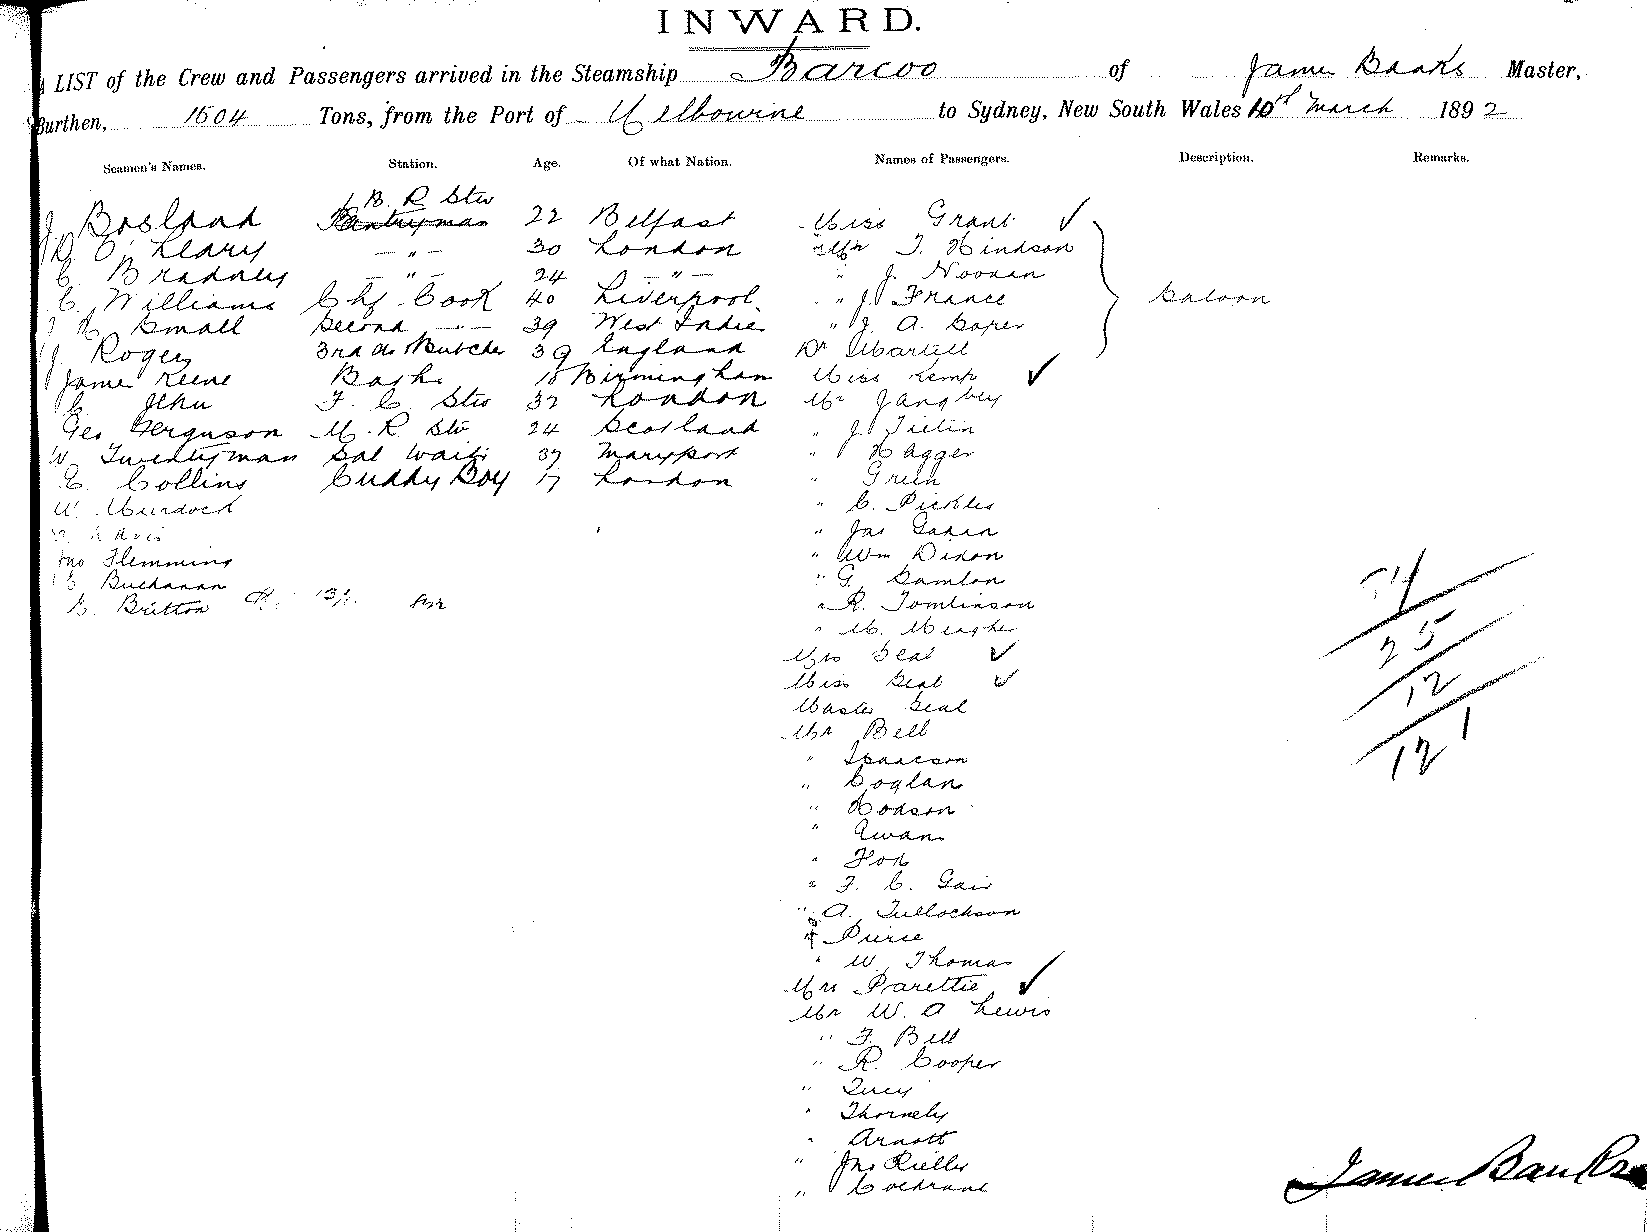 INWARD.
A LIST of the Crew and Passengers arrived in the Steamship Barcoo of James Banks Master,
Burthen, 1504 Tons, from the Port of Melbourne to Sydney, New South Wales 10th March 1892
Seamen's Names. Station. Age. Of what Nation. Names of Passengers. Description. Remarks.
B. R Stw
J. Bosland Pantryman 22 Belfast Miss Grant ✓
D. O'Leary — " — 30 London Mr T. Hindson
C. Bradney — " — 24 — " — " J. Noonan
C. Williams Chf Cook 40 Liverpool " J. France Saloon
J H Small Second — " — 39 West Indies " J. A. Soper
J. Rogers 3rd do & Butcher 39 England Dr Martell
James Keene 18 Birmingham Miss Kemp ✓
C. Jehu F. C. Stw 32 London Mr Jangbey
Geo Ferguson M. R. Stw 24 Scotland " J.
W Twentyman Sal Waiter 37 Maryport " Hagger
C. Collins Cuddy Boy 17 London " Green
W. Murdock " C. Pickles
" Jas
Jno Flemming " Wm Dixon
Buchanan " G.
C. Britton " R. Tomlinson
" M. Meagher
Mrs Seal ✓
Miss Seal ✓
Master Seal
Mr Bell
" Isaacson
" Coglan
" Hodson
" Ewan
" Fox
" F. C. Gair
" A. Tullochson
" Pierce
" W. Thomas
Mrs Parettie ✓
Mr W. A Lewis
" F. Bell
" R. Cooper
"
" Thornely
" Arnott
" Jno
" Cochrane
74
25
12
1
12
James Banks